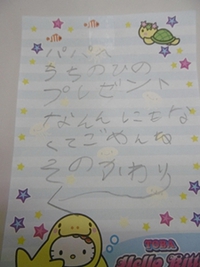 パパへ
うちのひの
プレゼント
なんんにもな
くてごめんね
そのかわり
TOBA
Hello Kitty